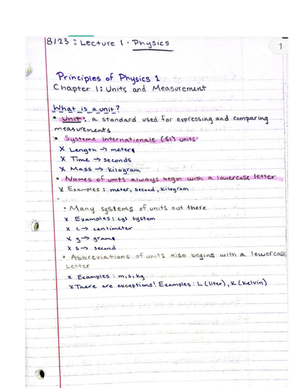 8/23 : Lecture 1 - Physics
1
Principles of Physics 1
Chapter 1: Units and Measurement
What is a unit?
* Unit: a standard used for expressing and comparing
measurements
* Systeme Internationale (SI) units
x Length → meters
x Time → seconds
x Mass → kilogram
* Names of units always begin with a lowercase letter
x Examples: meter, second, kilogram
* Many systems of units out there
x Examples: cgs system
x c → centimeter
x g → grams
x s → second
* Abbreviations of units also begins with a lowercase
letter
x Examples: m, s, kg
x There are exceptions! Examples: L (liter), K (Kelvin)